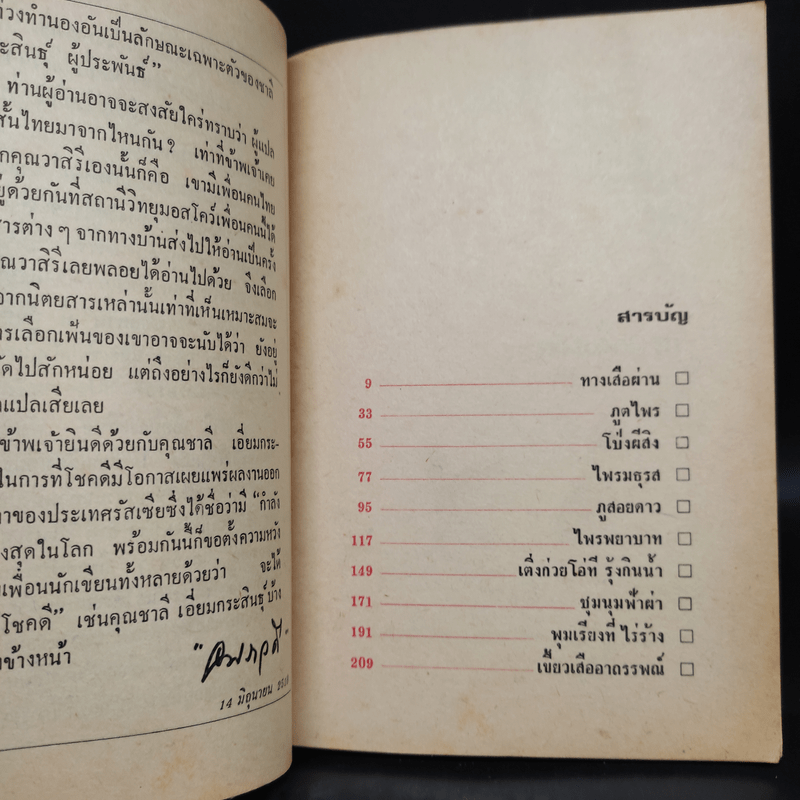 ท่วงทำนองอันเป็นลักษณะเฉพาะตัวของชาลี
ผู้ประพันธ์”
ท่านผู้อ่านอาจจะสงสัยใคร่ทราบว่า ผู้แปล
สั้นไทยมาจากไหนกัน ? เท่าที่ข้าพเจ้าเคย
คุณวาสิรีเองนั้นก็คือ เขามีเพื่อนคนไทย
ด้วยกันที่สถานีวิทยุมอสโคว์เพื่อนคนนี้ได้
สารต่าง ๆ จากทางบ้านส่งไปให้อ่านเป็นครั้ง
คุณวาสิรีเลยพลอยได้อ่านไปด้วย จึงเลือก
จากนิตยสารเหล่านั้นเท่าที่เห็นเหมาะสมจะ
การเลือกเฟ้นของเขาอาจจะนับได้ว่า ยังอยู่
ไปสักหน่อย แต่ถึงอย่างไรก็ยังดีกว่าไม่
แปลเสียเลย
ข้าพเจ้ายินดีด้วยกับคุณชาลี เอี่ยมกระ-
ในการที่โชคดีมีโอกาสเผยแพร่ผลงานออก
ของประเทศรัสเซียซึ่งได้ชื่อว่ามี “กำลัง
สุดในโลก พร้อมกันนี้ก็ขอตั้งความหวัง
เพื่อนนักเขียนทั้งหลายด้วยว่า จะได้
โชคดี” เช่นคุณชาลี เอี่ยมกระสินธุ์ บ้าง
ข้างหน้า
14 มิถุนายน
สารบัญ
9 ทางเสือผ่าน
33 ภูตไพร
55 โป่งผีสิง
77 ไพรมธุรส
95 ภูสอยดาว
117 ไพรพยาบาท
149 เติ่งก่วยโอ่ที รุ้งกินน้ำ
171 ชุมนุมฟ้าผ่า
191 พุมเรียงที่ ไร่ร้าง
209 เขี้ยวเสืออาถรรพณ์